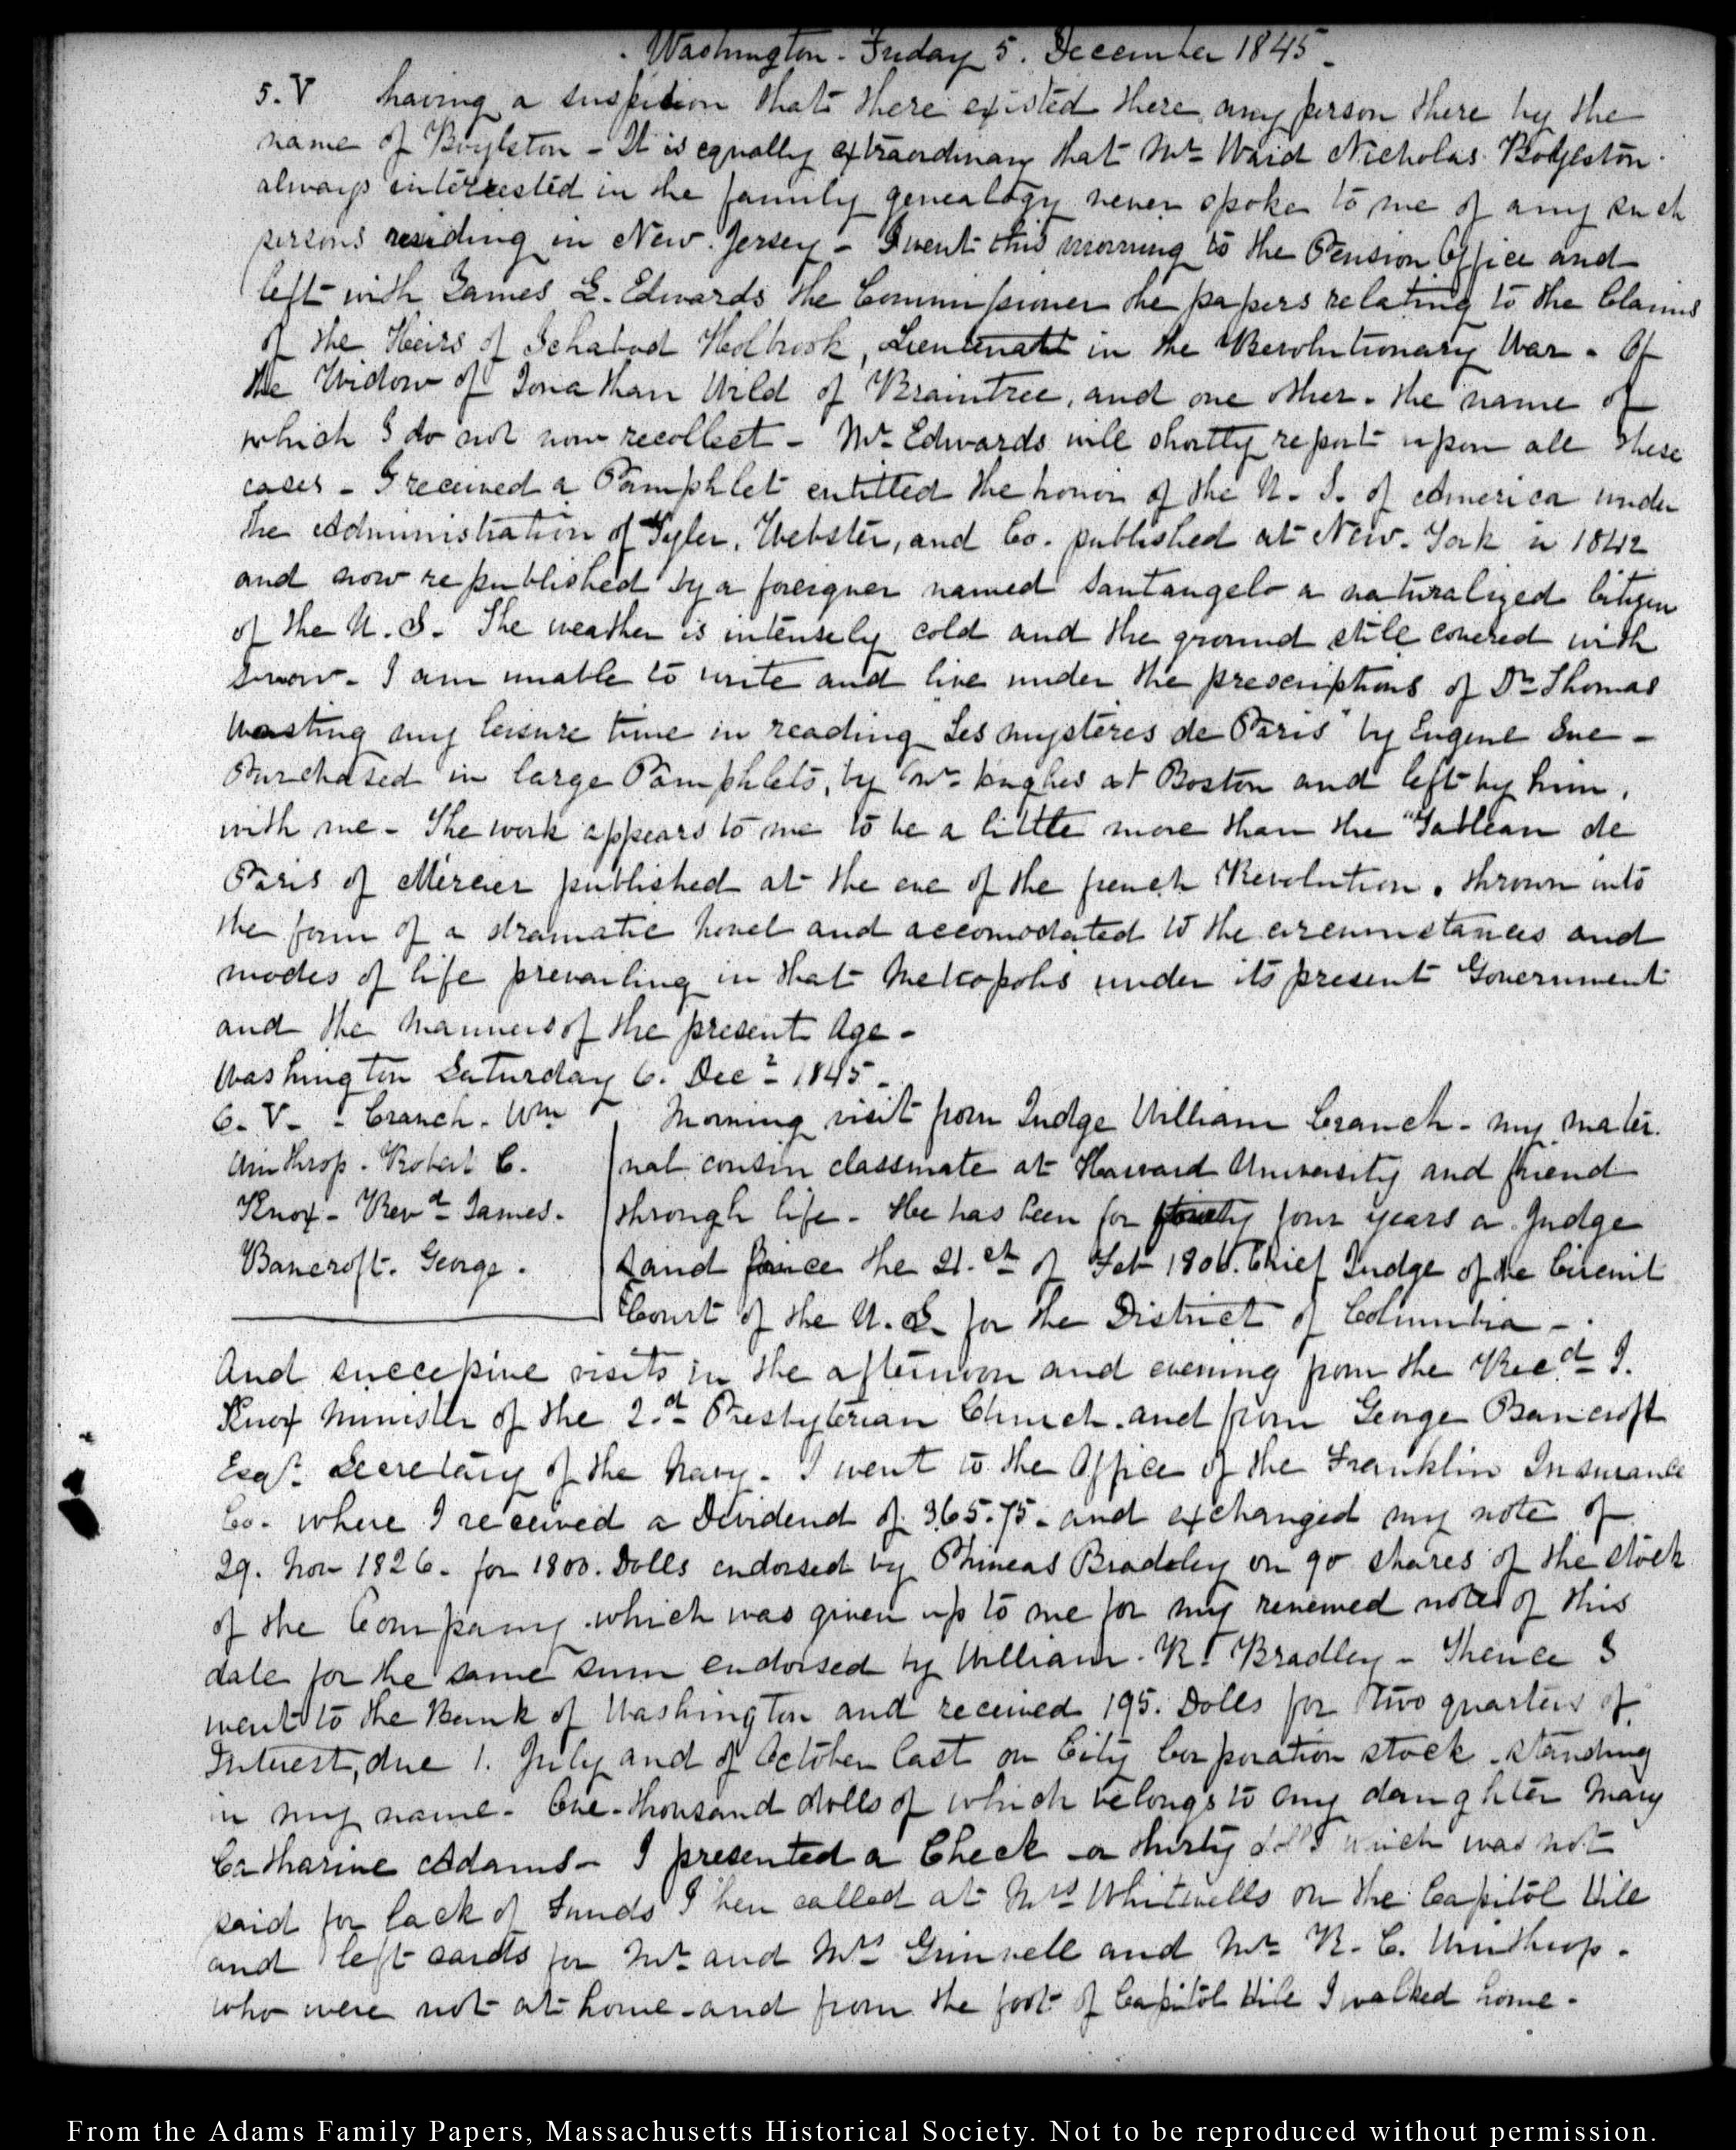 Washington. Friday 5. December 1845.
5. V having a suspicion that there existed there any person there by the
name of Boylston - It is equally extraordinary that Mr Ward Nicholas Boylston
always interested in the family genealogy never spoke to me of any such
persons residing in New. Jersey - I went this morning to the Pension Office and
left with James L. Edwards the Commissioner the papers relating to the Claims
of the Heirs of Ichabod Holbrook, Lieutenant in the Revolutionary War. Of
the Widow of Jonathan Wild of Braintree, and one other. the name of
which I do not now recollect - Mr Edwards will shortly report upon all these
cases - I received a Pamphlet entitled the honor of the U. S. of America under
the Administration of Tyler, Webster, and Co. published at New. York in 1842
and now republished by a foreigner named Santangelo a naturalized Citizen
of the U. S. The weather is intensely cold and the ground still covered with
snow. I am unable to write and live under the prescriptions of Dr Thomas
wasting my leisure time in reading Les mystères de Paris" by Eugene Sue -
Purchased in large Pamphlets, by Mr Hughes at Boston and left by him,
with me - The work appears to me to be a little more than the "Tableau de
Paris of Mercier published at the eve of the french Revolution. thrown into
the form of a dramatic novel and accomodated to the circumstances and
modes of life prevailing in that Metropolis under its present Government
and the manners of the present Age -
Washington Saturday 6. Decr 1845 -
6. V. - Cranch. Wm
Winthrop. Robert C.
Knox - Revd James.
Bancroft. George.
Morning visit from Judge William Cranch - my mater.
nal cousin classmate at Harvard University and friend
through life - He has been for forty four years a Judge
and since the 21.st of Feb 1806. Chief Judge of the Circuit
Court of the U. S. for the District of Columbia -
And successive visits in the afternoon and evening from the Revd J.
Knox Minister of the 2.d Presbyterian Church. and from George Bancroft
Esqr. Secretary of the Navy. I went to the Office of the Franklin Insurance
Co. where I received a Dividend of 365.75. and exchanged my note of
29. Nov 1826. for 1800. Dolls endorsed by Phineas Bradley on 90 shares of the stock
of the Company which was given up to me for my renewed note of this
date for the same sum endorsed by William. R. Bradley - Thence I
went to the Bank of Washington and received 195. Dolls for two quarters of
Interest, due 1. July and of October last on City Corporation stock. standing
in my name. One thousand dolls of which belongs to my daughter Mary
Catharine Adams - I presented a Check thirty dolls which was not
paid for lack of Funds I then called at Mrs Whitwells on the Capitol Hill
and left cards for Mr and Mrs Grinnell and Mr R. C. Winthrop.
who were not at home - and from the foot of Capitol Hill I walked home.
From the Adams Family Papers, Massachusetts Historical Society. Not to be reproduced without permission.